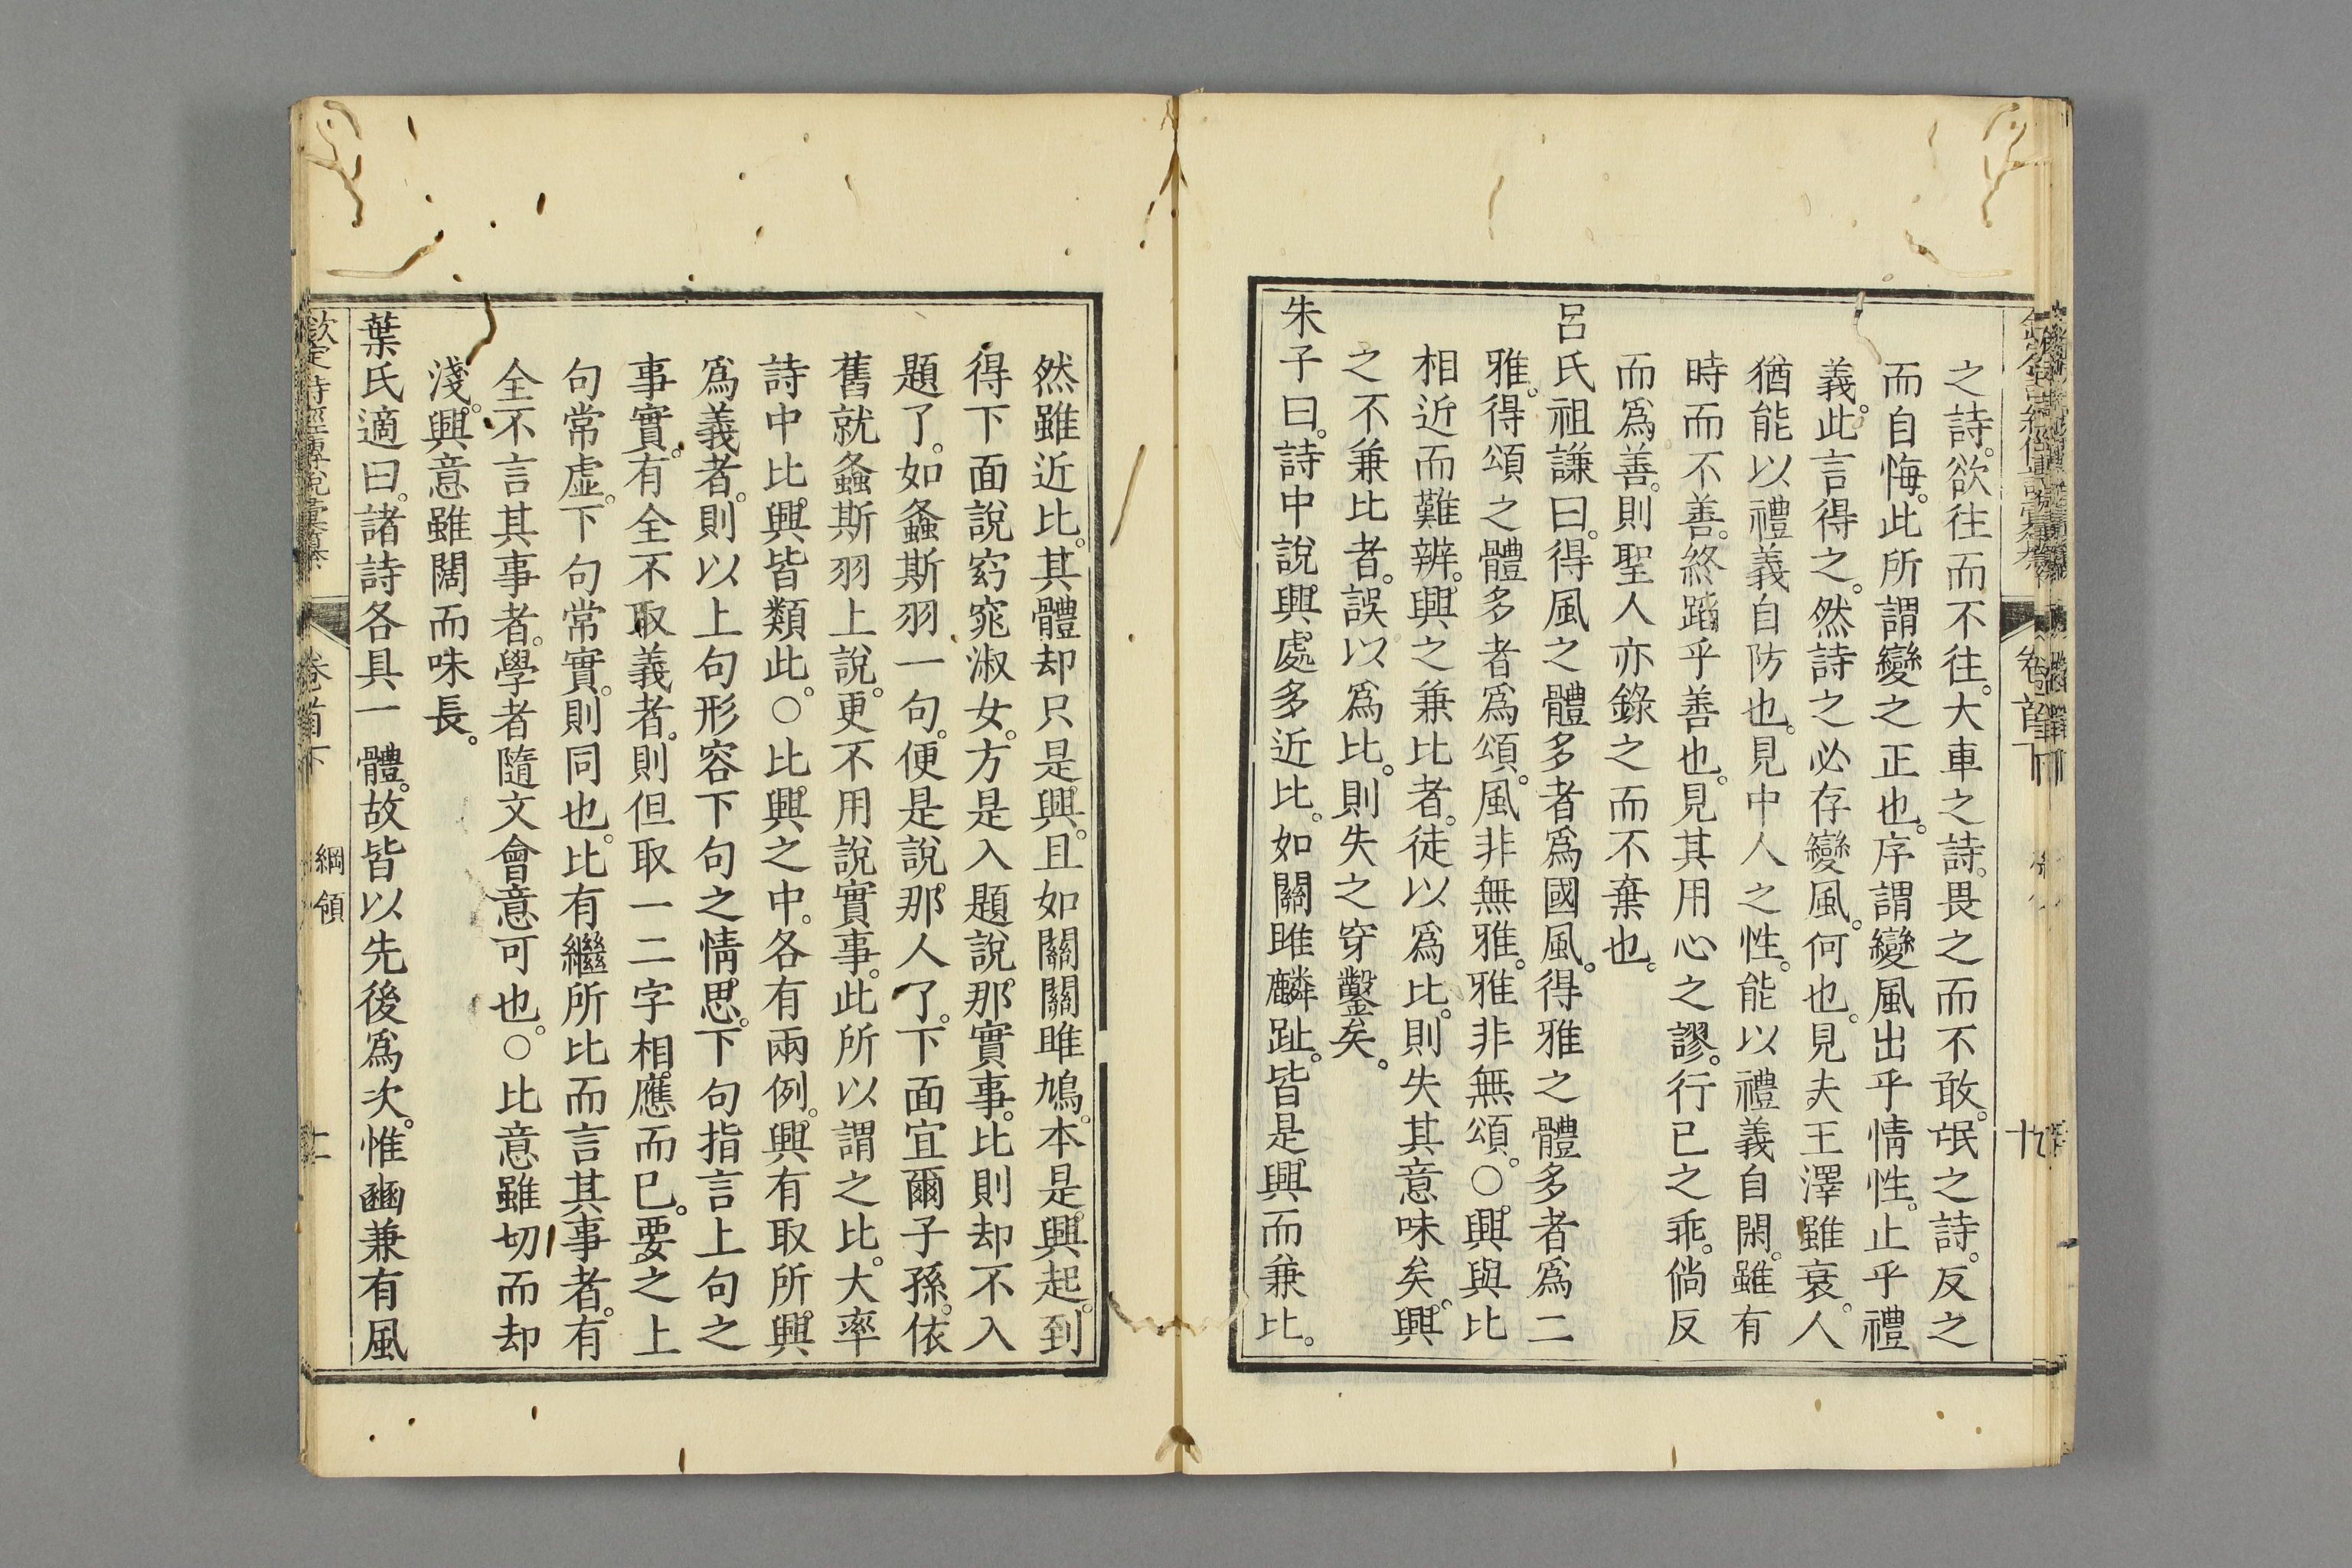 之詩。欲往而不往。大車之詩。畏之而不敢。氓之詩。反之
而自悔。此所謂變之正也。序謂變風出乎情性。止乎禮
義。此言得之。然詩之必存變風。何也。見夫王澤雖衰。人
猶能以禮義自防也。見中人之性。能以禮義自閑。雖有
時而不善。終蹈乎善也。見其用心之謬。行已之乖。倘反
而爲善。則聖人亦錄之而不棄也。
呂氏祖謙曰。得風之體多者爲國風。得雅之體多者爲二
雅。得頌之體多者爲頌。風非無雅。雅非無頌。○興與比
相近而難辨。興之兼比者。徒以爲比。則失其意味矣。興
之不兼比者。誤以爲比。則失之穿鑿矣。
朱子曰。詩中說興處多近比。如關雎麟趾。皆是興而兼比。
然雖近比。其體却只是興。且如關關雎鳩。本是興起。到
得下面說窈窕淑女。方是入題說那實事。比則却不入
題了。如螽斯羽一句。便是說那人了。下面宜爾子孫。依
舊就螽斯羽上說。更不用說實事。此所以謂之比。大率
詩中比興皆類此。○比興之中。各有兩例。興有取所興
爲義者。則以上句形容下句之情思。下句指言上句之
事實。有全不取義者。則但取一二字相應而已。要之上
句常虛。下句常實。則同也。比有繼所比而言其事者。有
全不言其事者。學者隨文會意可也。○比意雖切而却
淺。興意雖闊而味長。
葉氏適曰。諸詩各具一體。故皆以先後爲次。惟豳兼有風
欽定詩經傳說彙纂 卷首下 綱領